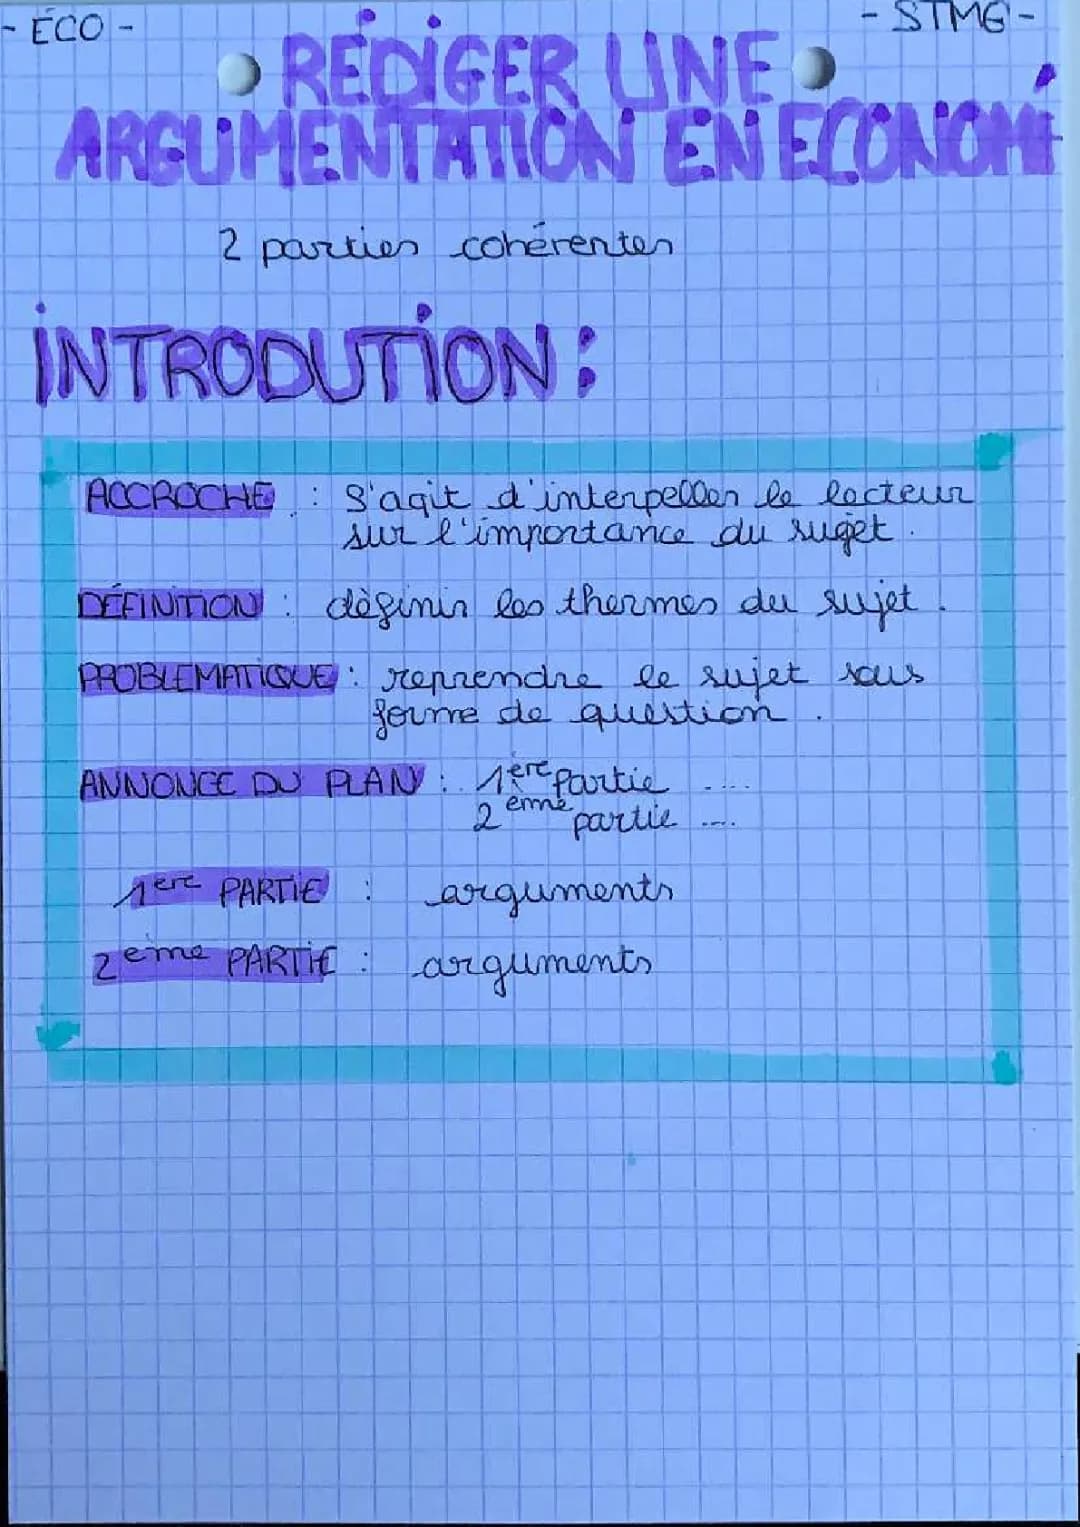 - ÉCO -
- STMG -
RÉDIGER UNE
ARGUMENTATION EN ECONOMÍE
2 parties cohérentes
INTRODUTION :
ACCROCHE : S'agit d'interpeller le lecteur
sur l'importance du suget.
DÉFINITION : dèfinir les thermes du sujet.
PROBLEMATIQUE : reprendre le sujet sous
forme de question.
ANNONCE DU PLAN : 1ère partie ....
2 ème partie ....
1ere PARTIE : arguments
2 eme PARTIE : arguments